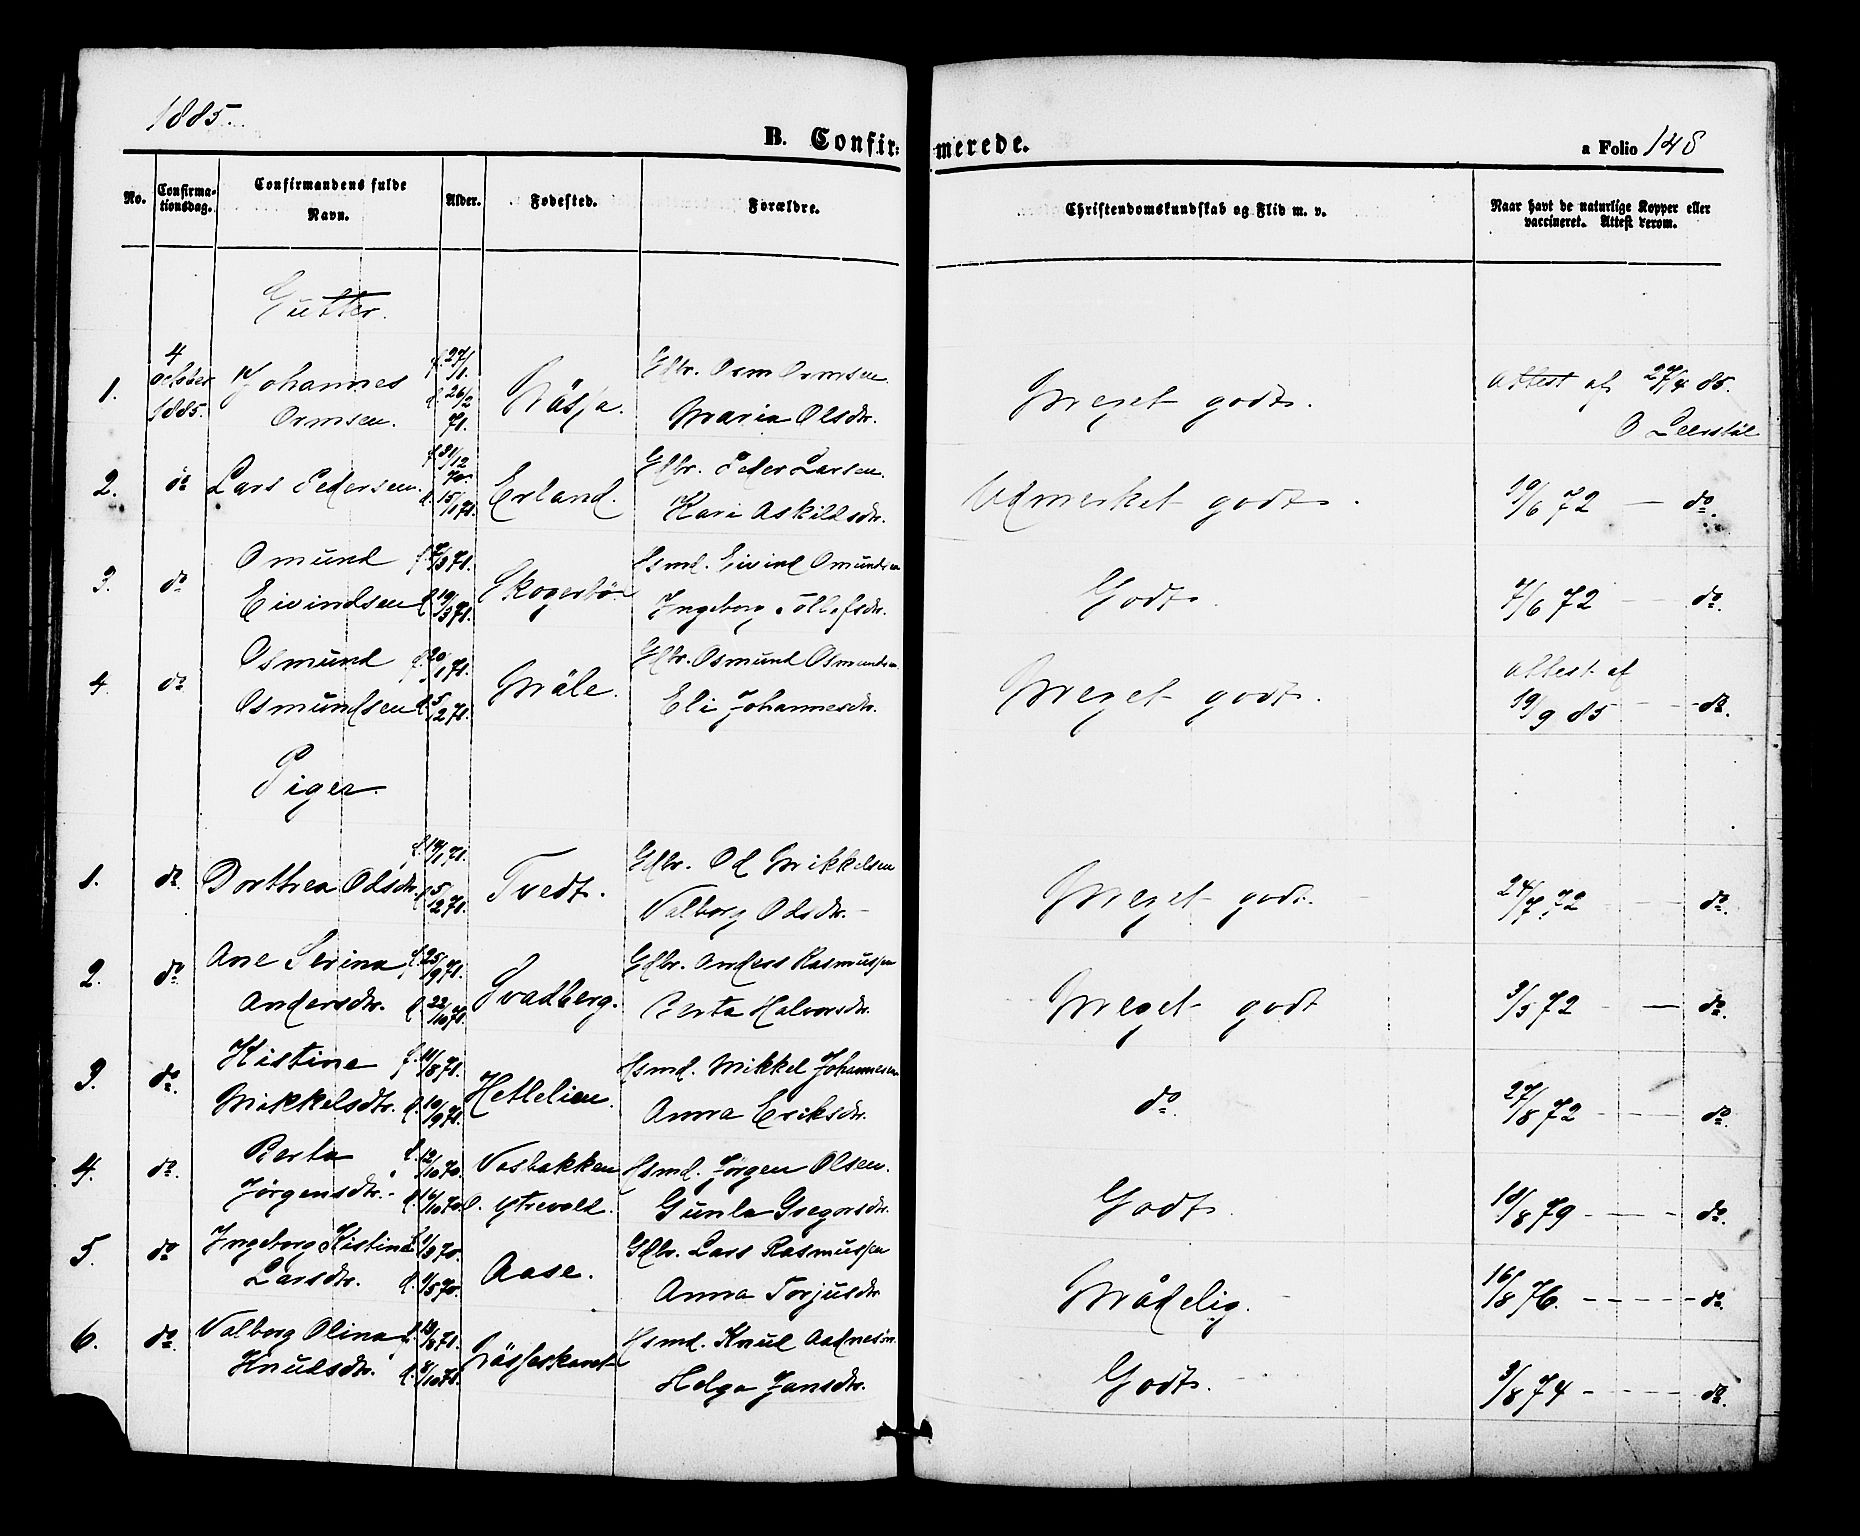 1885.
B. Confir-merede.
a Folio 148
No.
Confirma-
tionsdag.
Confirmandens fulde
Navn.
Alder.
Fødested.
Forældre.
Christendomskundskab og Flid m. v.
Naar havt de naturlige Kopper eller
vaccineret. Attest derom.
Gutter.
1. 4 october 1885. Johannes Ormsen. f. 27/1. d. 26/2 71. Gbr. Orm Ormsen. Maria Olsdtr. Meget godt. Attest af 27/4 85.
2. do Lars Pedersen. f. 31/12 70. d. 15/1 71. Erland. Gbr. Peder Larsen. Kari Askildsdtr. Udmerket godt. 19/6 72 — do.
3. do Omund Eivindsen f. 7/3 71. d. 19/3 71. Skogerbø Hsmd. Eivind Omundsen Ingeborg Tollefsdtr. Godt. 7/6 72 — do.
4 do Osmund Osmundsen f. 20/1 71. d. 5/2 71. Mæle. Gbr. Osmund Osmundsen Eli Johannesdtr. Meget godt. Attest af 19/9 85 - - - do.
Piger.
1. do. Dorthea Odsdtr. f. 14/1 71. d. 5/2 71. Tvedt. Gbr. Od Mikkelsen Valborg Odsdtr. Meget godt. 24/7 72 - - do.
2. do. Ane Serina Andersdtr. f. 25/9 71. d. 22/10 71. Svadberg. Gbr. Anders Rasmussen Berta Halvorsdtr. Meget godt 3/5 72 - — do.
3. do. Kistine Mikkelsdtr. f. 11/8 71. d. 10/9 71. Hetlelien. Hsmd. Mikkel Johannesen Anna Eriksdtr. do. 27/8 72 - - - do.
4. do. Berta Jørgensdtr. f. 12/10 70. d. 16/10 70. Vasbakken Ytrevold. Hsmd. Jørgen Olsen. Gunla Gregorsdtr. Godt. 10/8 79 - - - do.
5. do Ingeborg Kistine Larsdtr. f. 1/3 70. d. 1/5 70. Aase. Gbr. Lars Rasmussen Anna Torjusdtr Mådelig. 16/8 76. - - - - do.
6. do. Valborg Olina Knudsdtr. d. 8/10 71. Hsmd. Knud Aadnesøn. Helga Jansdtr. Godt. 3/8 74 - - - - do.